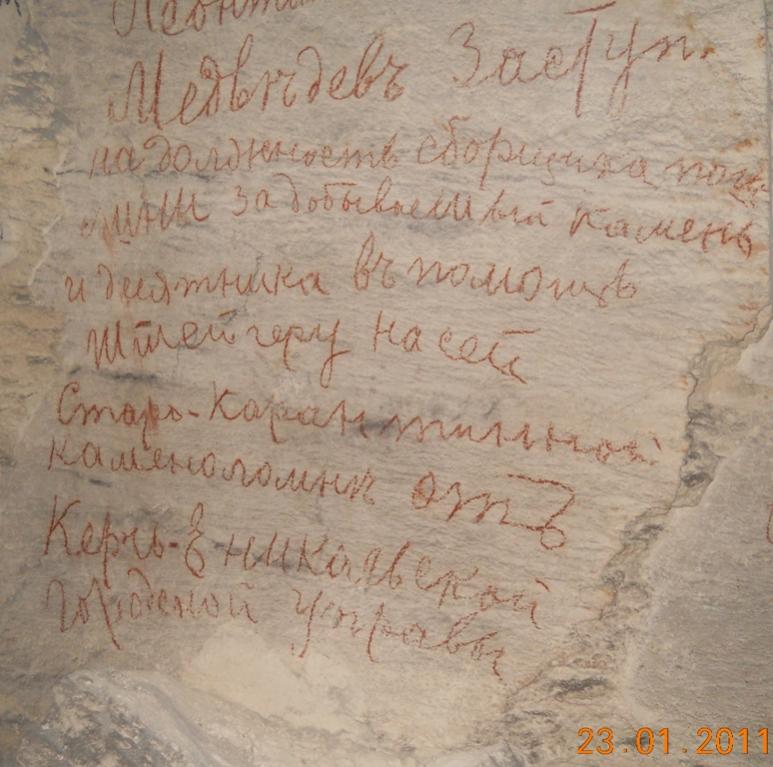 Леонти
Медвѣдевъ Заступ.
на должность сборщика пош
лины за добываемый камень
и десятника въ помощь
Штейгеру на сей
Старо-Карантинной
каменоломнѣ отъ
Керчь-Еникальской
Городской Управы
23.01.2011